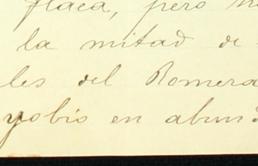 flaca, pero n
la mitad de
les del Romera
yobis en abun